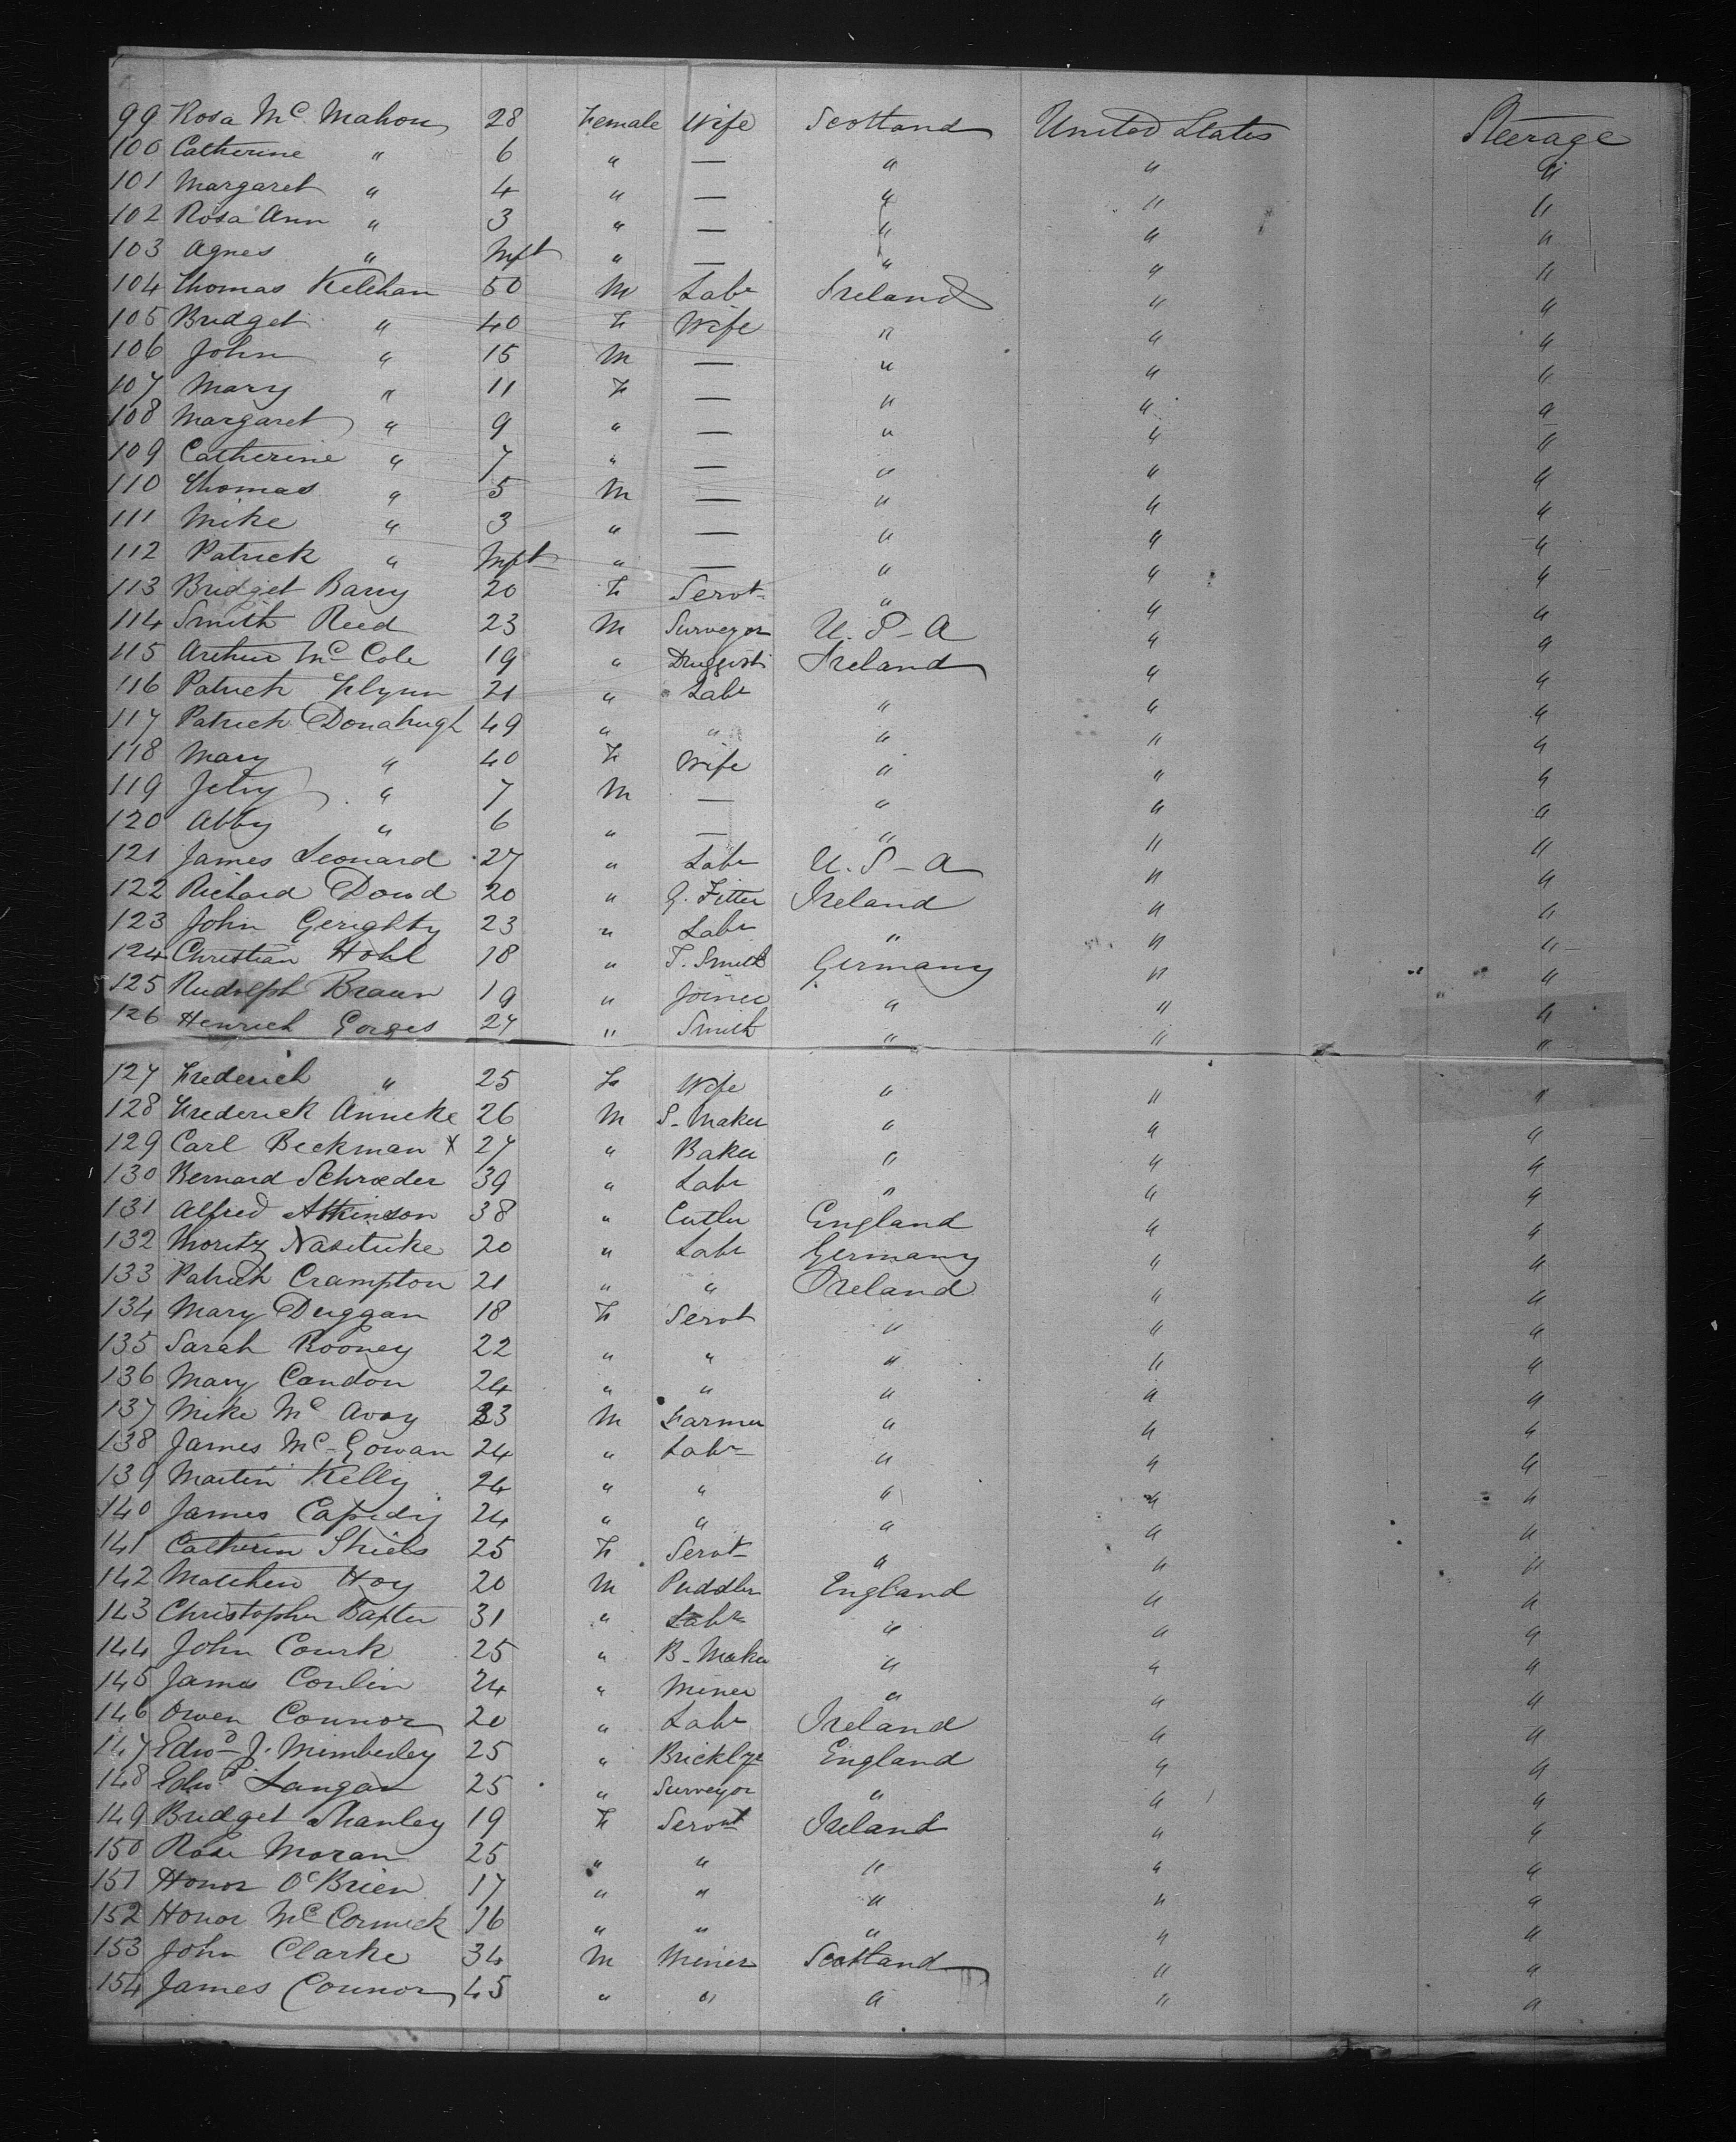 99 Rosa Mc Mahon 28 Female Wife Scotland United States Steerage
100 Catherine " 6 " — " " "
101 Margaret " 4 " — " " "
102 Rosa Ann " 3 " — " " "
103 Agnes " Inft " — " " "
104 Thomas Kelehan 50 M Labr Ireland " "
105 Bridget " 40 F Wife " " "
106 John " 15 M — " " "
107 Mary " 11 F — " " "
108 Margaret " 9 " — " " "
109 Catherine " 7 " — " " "
110 Thomas " 5 M — " " "
111 Mike " 3 " — " " "
112 Patrick " Inft " — " " "
113 Bridget Barry 20 F Servt " " "
114 Smith Reed 23 M Surveyor U.S-A " "
115 Arthur Mc Cole 19 " Druggist Ireland " "
116 Patrick Flynn 21 " Labr " " "
117 Patrick Donahugh 49 " " " " "
118 Mary " 40 F Wife " " "
119 " 7 M — " " "
120 Abby " 6 " — " " "
121 James Leonard 27 " Labr U.S-A " "
122 Richard Dowd 20 " G. Fitter Ireland " "
123 John Gerighty 23 " Labr " " "
124 Christian Hohl 18 " T. Smith Germany " "
125 Rudolph Braun 19 " Joiner " " "
126 Henrich Gorges 27 " Smith " " "
127 Frederich " 25 F Wife " " "
128 Frederick Anneke 26 M S-Maker " " "
129 Carl Beckman X 27 " Baker " " "
130 Bernard Schroeder 39 " Labr " " "
131 Alfred Atkinson 38 " Cutler England " "
132 Moritz 20 " Labr Germany " "
133 Patrick Crampton 21 " " Ireland " "
134 Mary Duggan 18 F Servt " " "
135 Sarah Rooney 22 " " " " "
136 Mary Condon 24 " " " " "
137 Mike Mc Avoy 33 M Farmer " " "
138 James Mc Gowan 24 " Labr " " "
139 Martin Kelly 24 " " " " "
140 James 24 " " " " "
141 Catherin Shiels 25 F Servt " " "
142 Matthew Hoy 20 M Puddler England " "
143 Christopher Baxter 31 " Labr " " "
144 John Courk 25 " B-Maker " " "
145 James Conlin 24 " Miner " " "
146 Owen Connor 20 " Labr Ireland " "
147 Edwd J. Mimberley 25 " Bricklyr England " "
148 Edwd Langan 25 " Surveyor " " "
149 Bridget Shanley 19 F Servt Ireland " "
150 Rose Moran 25 " " " " "
151 Honor O'Brien 17 " " " " "
152 Honor Mc Cormick 16 " " " " "
153 John Clarke 34 M Miner Scotland " "
154 James Connor 45 " " " " "